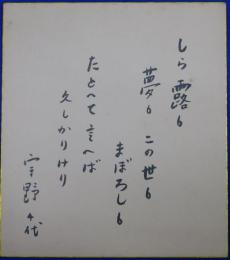 しら露も
夢も この世も
まぼろしも
たとへて言へば
久しかりけり
宇野千代